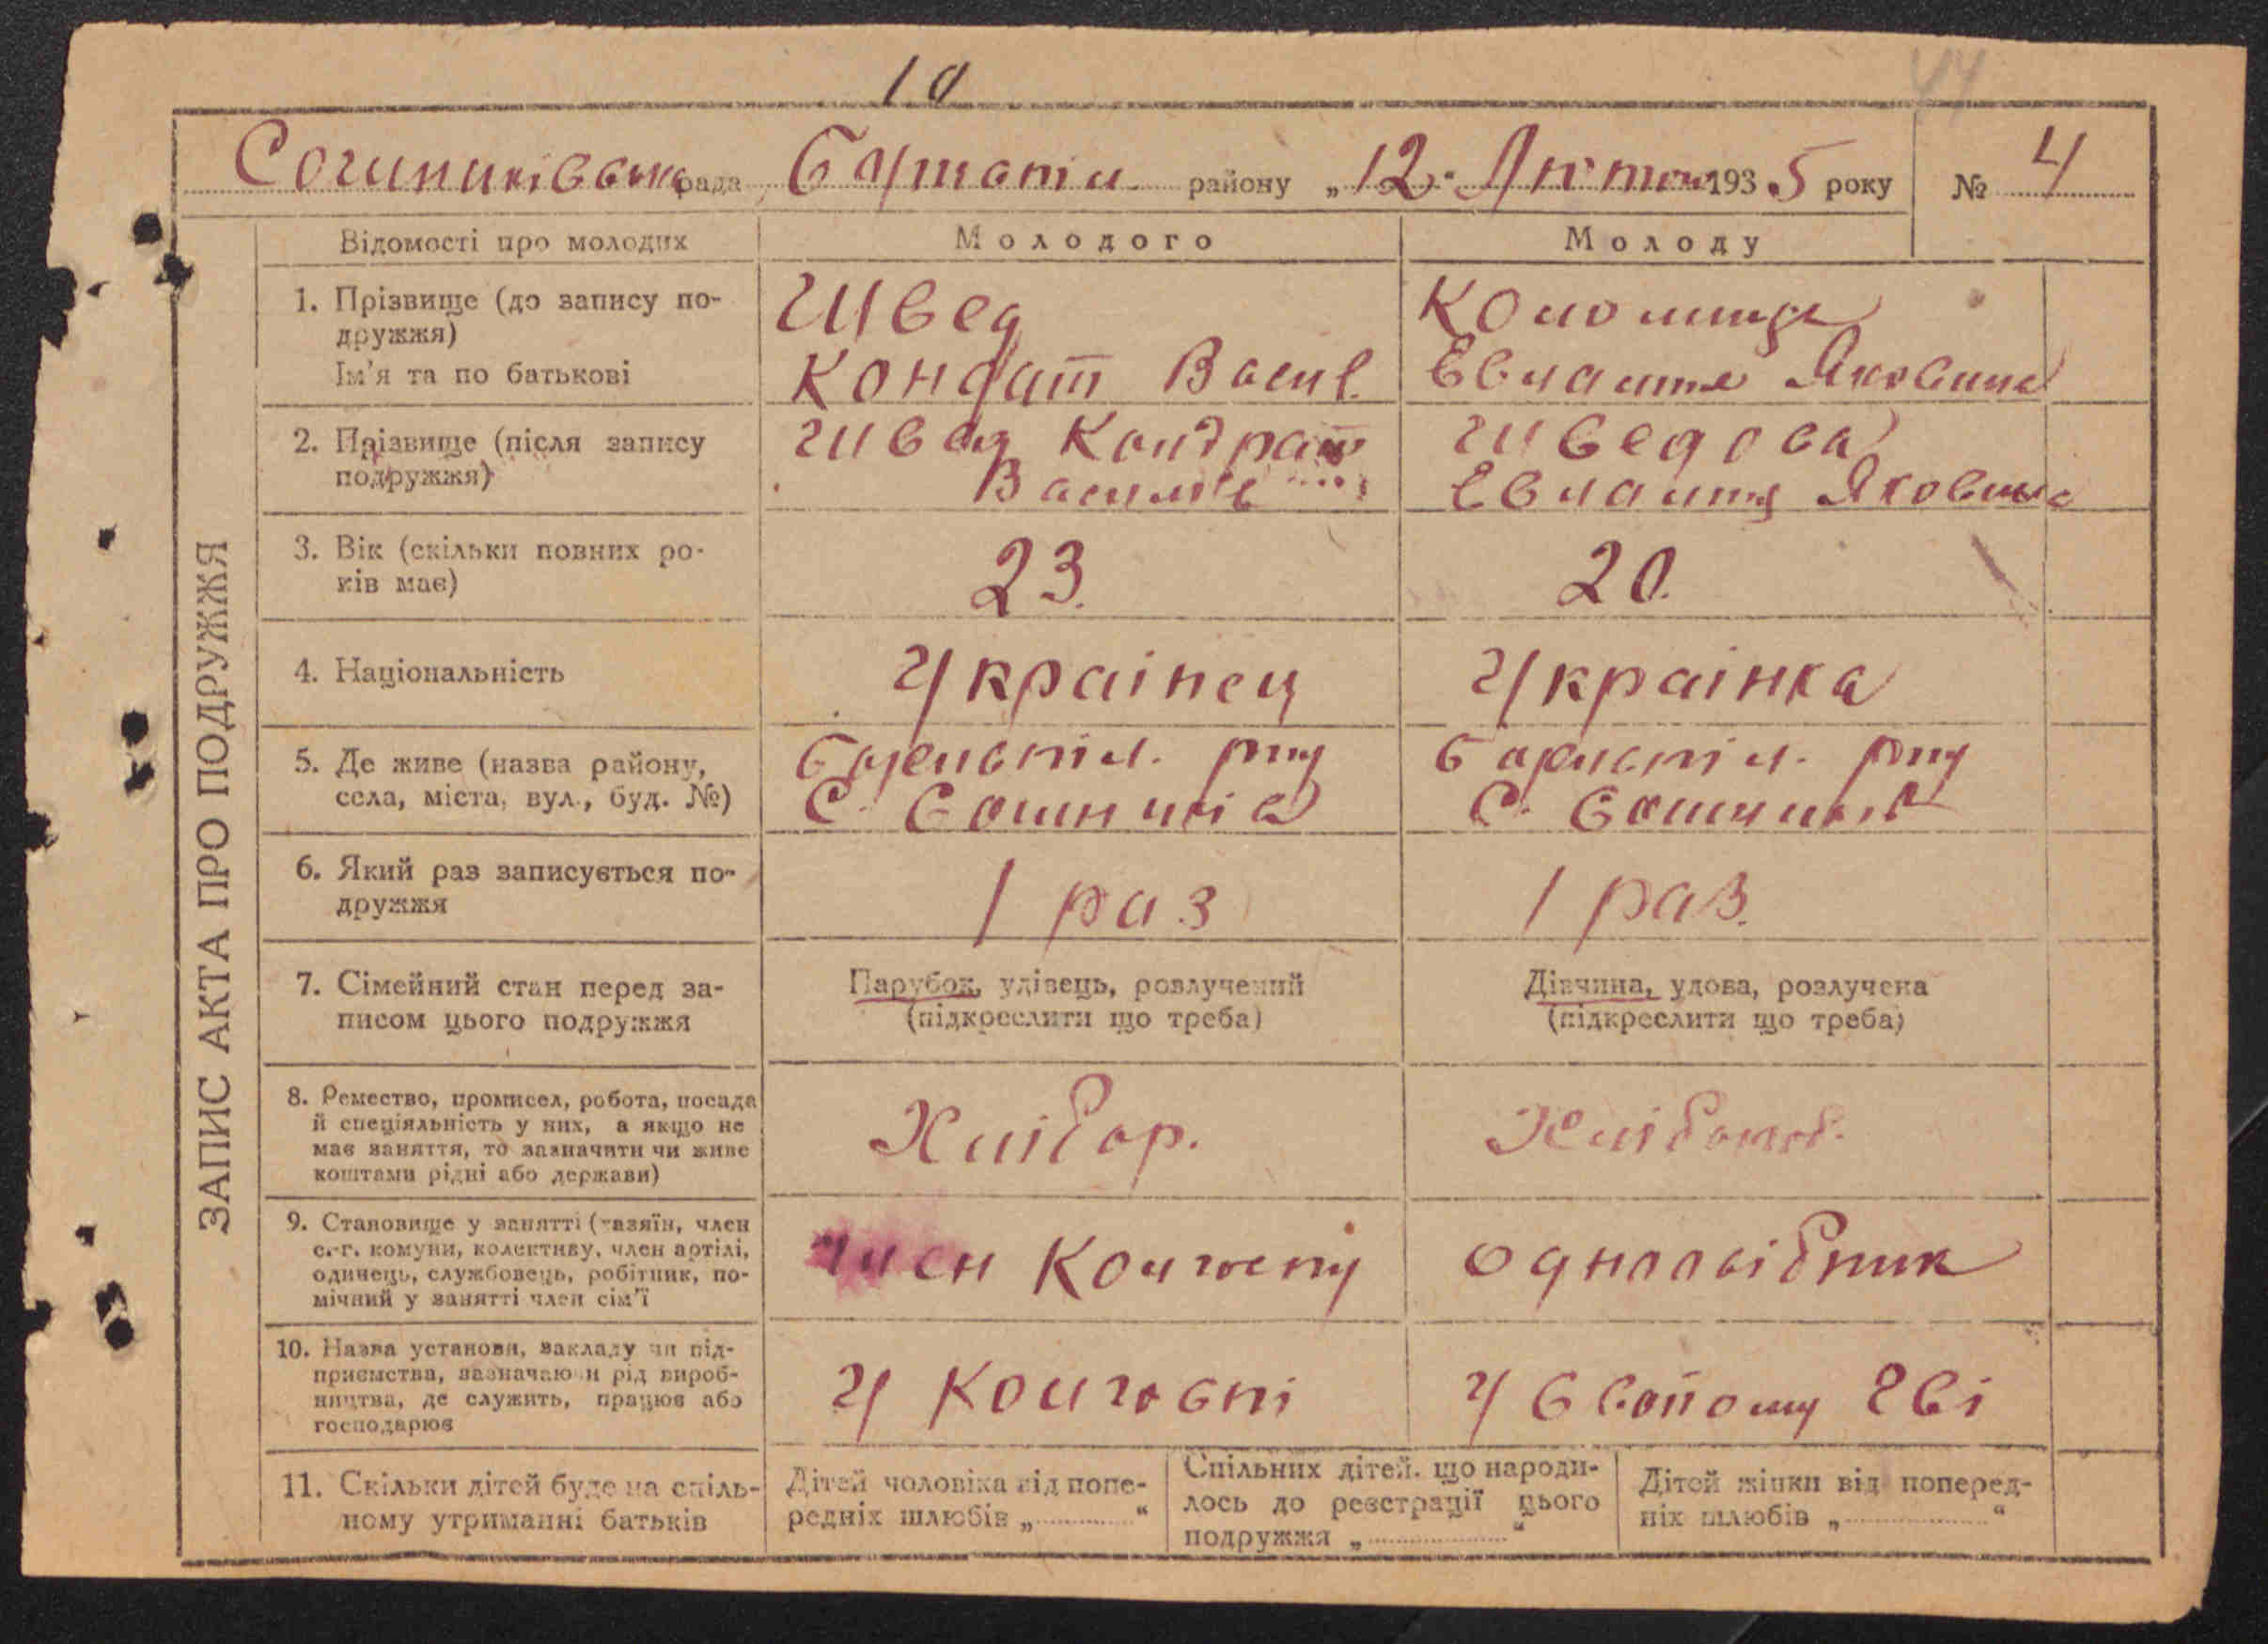 10
рада району „12" Лютого 1935 року № 4
Відомості про молодих
Молодого
Молоду
ЗАПИС АКТА ПРО ПОДРУЖЖЯ
1. Прізвище (до запису по-
дружжя)
Ім'я та по батькові
Швед
Кондрат Васил.
Яковина
2. Прізвище (після запису
подружжя)
Швед Кондрат
Шведова
Яковина
3. Вік (скільки повних ро-
ків має)
23.
20.
4. Національність
Українец
Українка
5. Де живе (назва району,
села, міста, вул., буд. №)
С.
С.
6. Який раз записується по-
дружжя
1 раз
1 раз.
7. Сімейний стан перед за-
писом цього подружжя
Парубок, удівець, розлучений
(підкреслити що треба)
Дівчина, удова, розлучена
(підкреслити що треба)
8. Ремество, промисел, робота, посада
й спеціяльність у них, а якщо не
має заняття, то зазначити чи живе
коштами рідні або держави)
Хлібор.
9. Становище у занятті (хазяїн, член
с.-г. комуни, колективу, член артілі,
одинець, службовець, робітник, по-
мічний у занятті член сім'ї
член Колгоспу
одноосібник
10. Назва установи, закладу чи під-
приємства, зазначаючи рід вироб-
ництва, де служить, працює або
господарює
У Колгоспі
У свойому
11. Скільки дітей буде на спіль-
ному утриманні батьків
Дітей чоловіка від попе-
редніх шлюбів „ "
Спільних дітей, що народи-
лось до реєстрації цього
подружжя „ "
Дітей жінки від поперед-
ніх шлюбів „ "